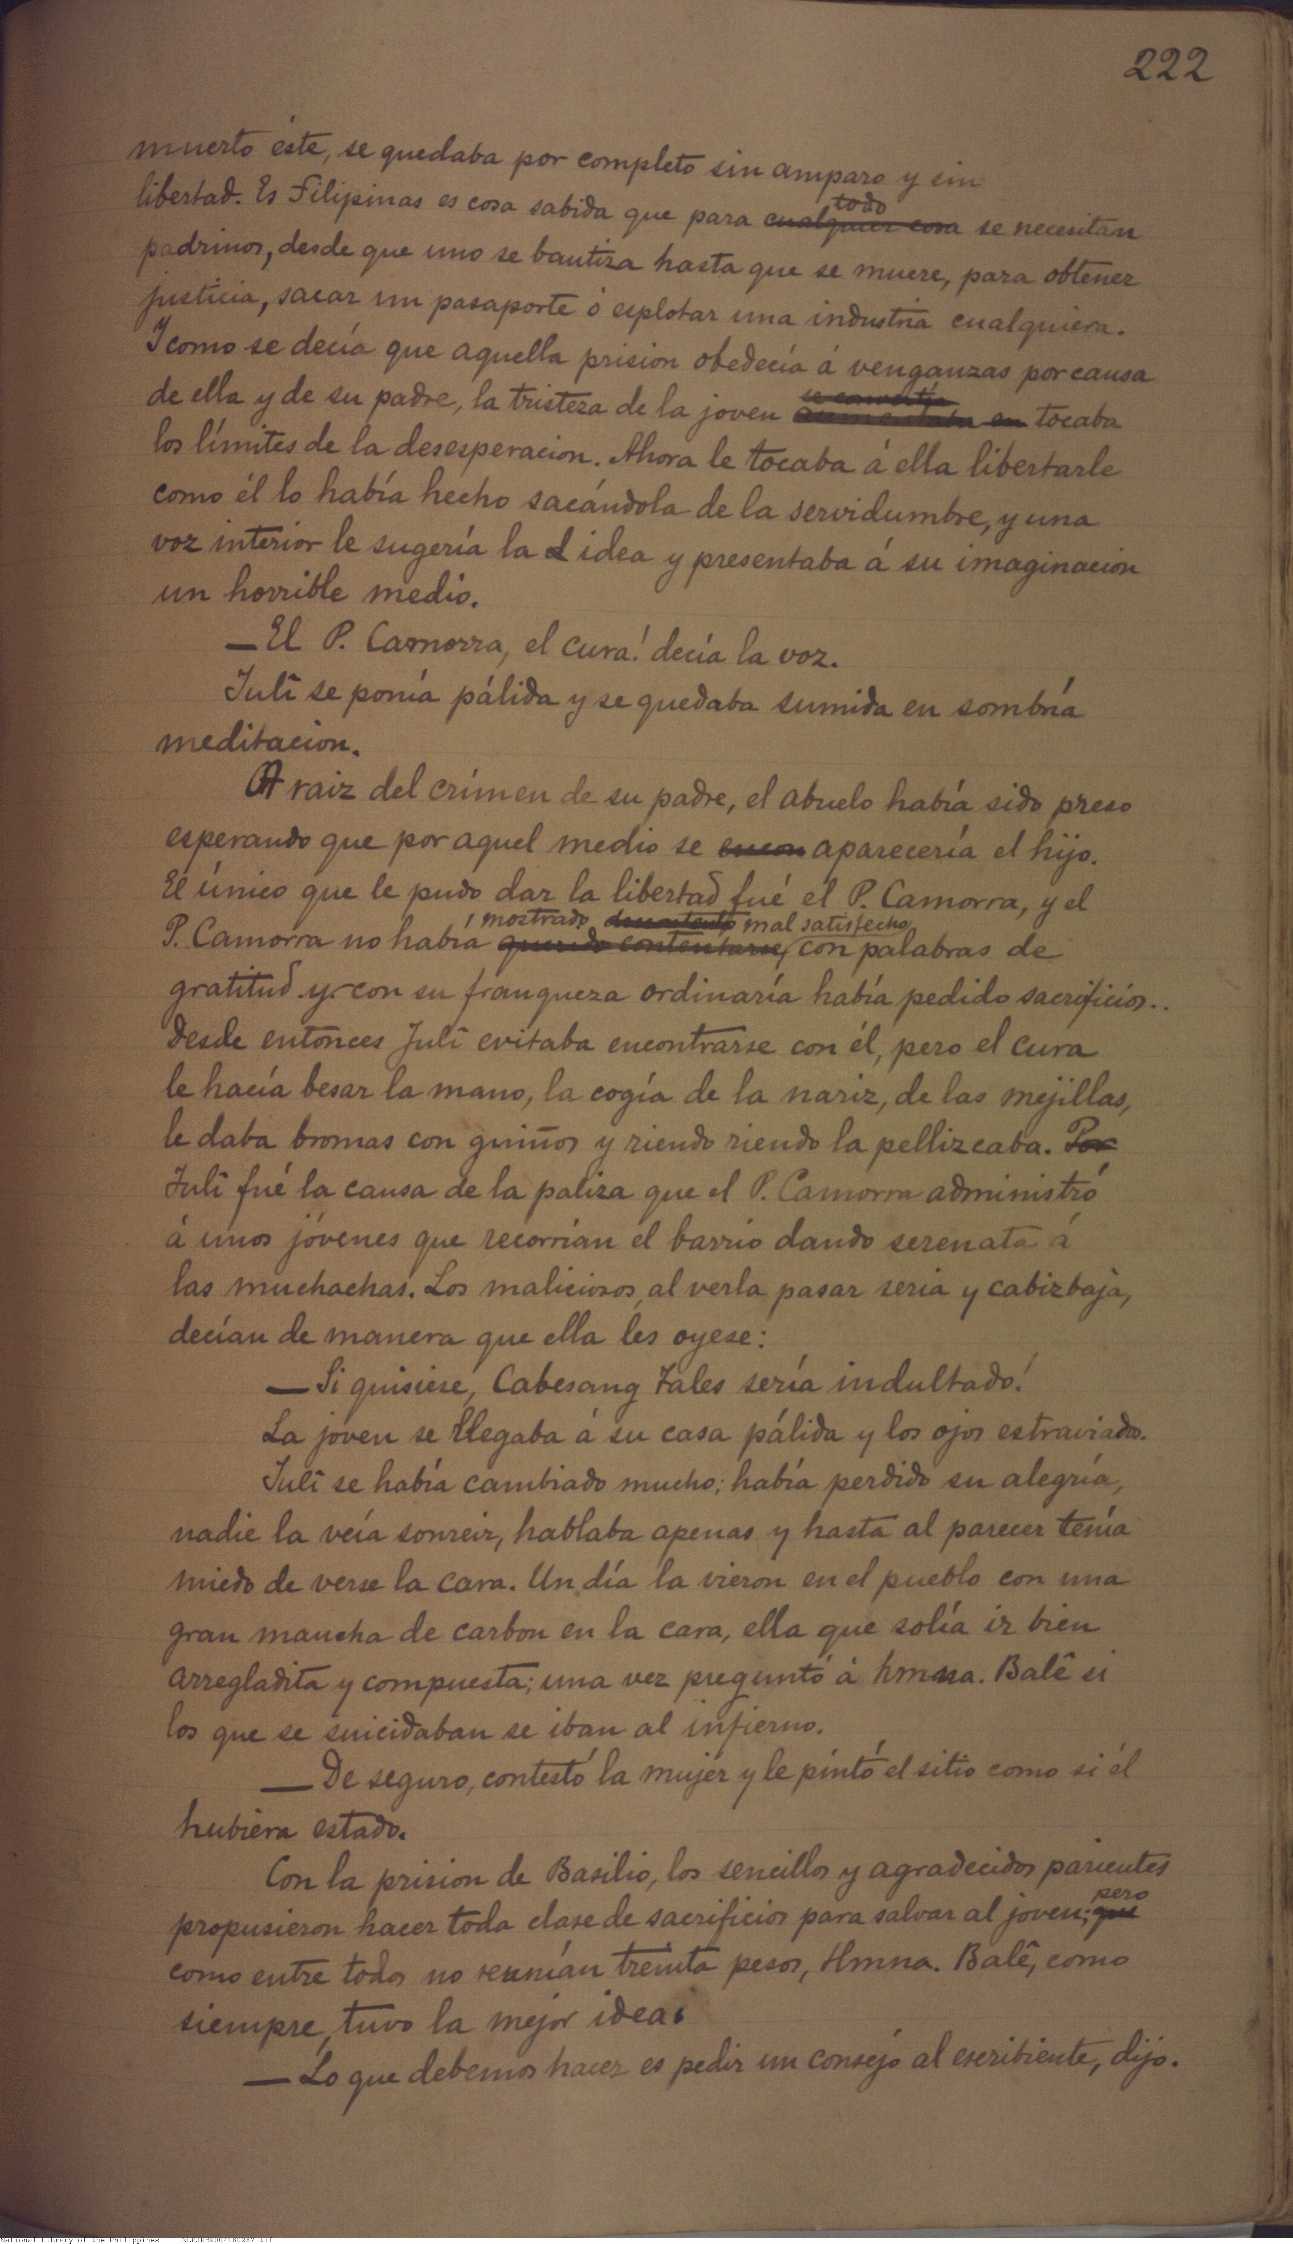 222
muerto éste, se quedaba por completo sin amparo y sin
libertad. Es Filipinas es cosa sabida que para cualquier cosa todo se necesitan
padrinos, desde que uno se bautiza hasta que se muere, para obtener
justicia, sacar un pasaporte ó esplotar una industria cualquiera.
Y como se decía que aquella prision obedecía á venganzas por causa
de ella y de su padre, la tristeza de la joven tocaba
los límites de la desesperacion. Ahora le tocaba á ella libertarle
como él lo había hecho sacándola de la servidumbre, y una
voz interior le sugería la idea y presentaba á su imaginacion
un horrible medio.
—El P. Camorra, el cura! decía la voz.
Julî se ponía pálida y se quedaba sumida en sombría
meditacion.
A raiz del crímen de su padre, el abuelo había sido preso
esperando que por aquel medio se encon aparecería el hijo.
El único que le pudo dar la libertad fué el P. Camorra, y el
P. Camorra no había querido contentarse mostrado descontento mal satisfecho con palabras de
gratitud y con su franqueza ordinaría había pedido sacrificios..
Desde entonces Julî evitaba encontrarse con él, pero el cura
le hacía besar la mano, la cogía de la nariz, de las mejillas,
le daba bromas con guiños y riendo riendo la pellizcaba. Por
Julî fué la causa de la paliza que el P. Camorra administró
á unos jóvenes que recorrían el barrio dando serenata á
las muchachas. Los maliciosos, al verla pasar seria y cabizbaja,
decían de manera que ella les oyese:
—Si quisiese, Cabesang Tales sería indultado!
La joven se llegaba á su casa pálida y los ojos estraviados.
Julî se había cambiado mucho; había perdido su alegría,
nadie la veía sonreir, hablaba apenas y hasta al parecer tenía
miedo de verse la cara. Un día la vieron en el pueblo con una
gran mancha de carbon en la cara, ella que solía ir bien
arregladita y compuesta; una vez preguntó á hmna. Balê si
los que se suicidaban se iban al infierno.
—De seguro, contestó la mujer y le pintó el sitio como si él
hubiera estado.
Con la prision de Basilio, los sencillos y agradecidos parientes
propusieron hacer toda clase de sacrificios para salvar al joven; que pero
como entre todos no reunían treinta pesos, Hmna. Balê, como
siempre, tuvo la mejor idea.
—Lo que debemos hacer es pedir un consejo al escribiente, dijo.